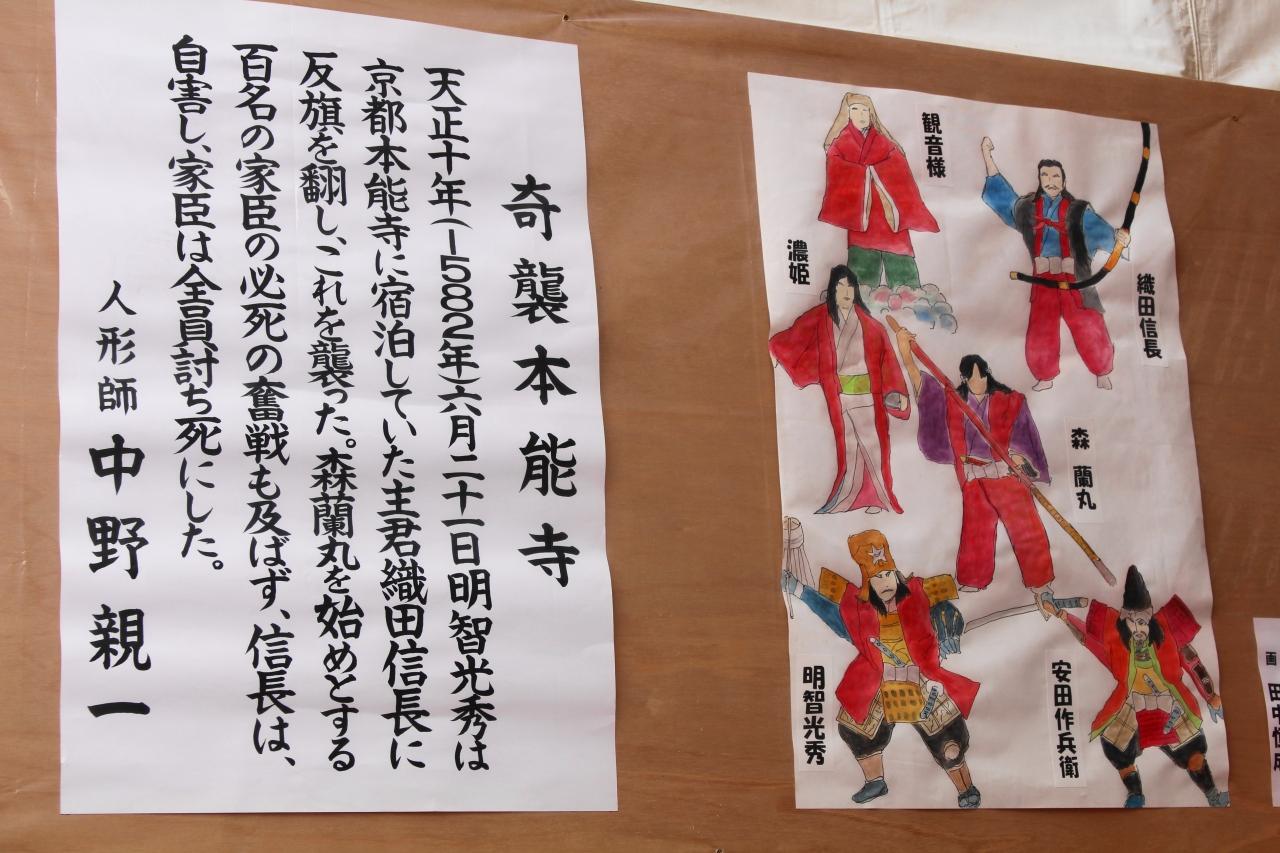 奇襲本能寺
天正十年(1582年)六月二十一日明智光秀は
京都本能寺に宿泊していた主君織田信長に
反旗を翻し、これを襲った。森蘭丸を始めとする
百名の家臣の必死の奮戦も及ばず、信長は、
自害し、家臣は全員討ち死にした。
人形師 中野親一
観音様
織田信長
濃姫
森 蘭丸
明智光秀
安田作兵衛
画
田中